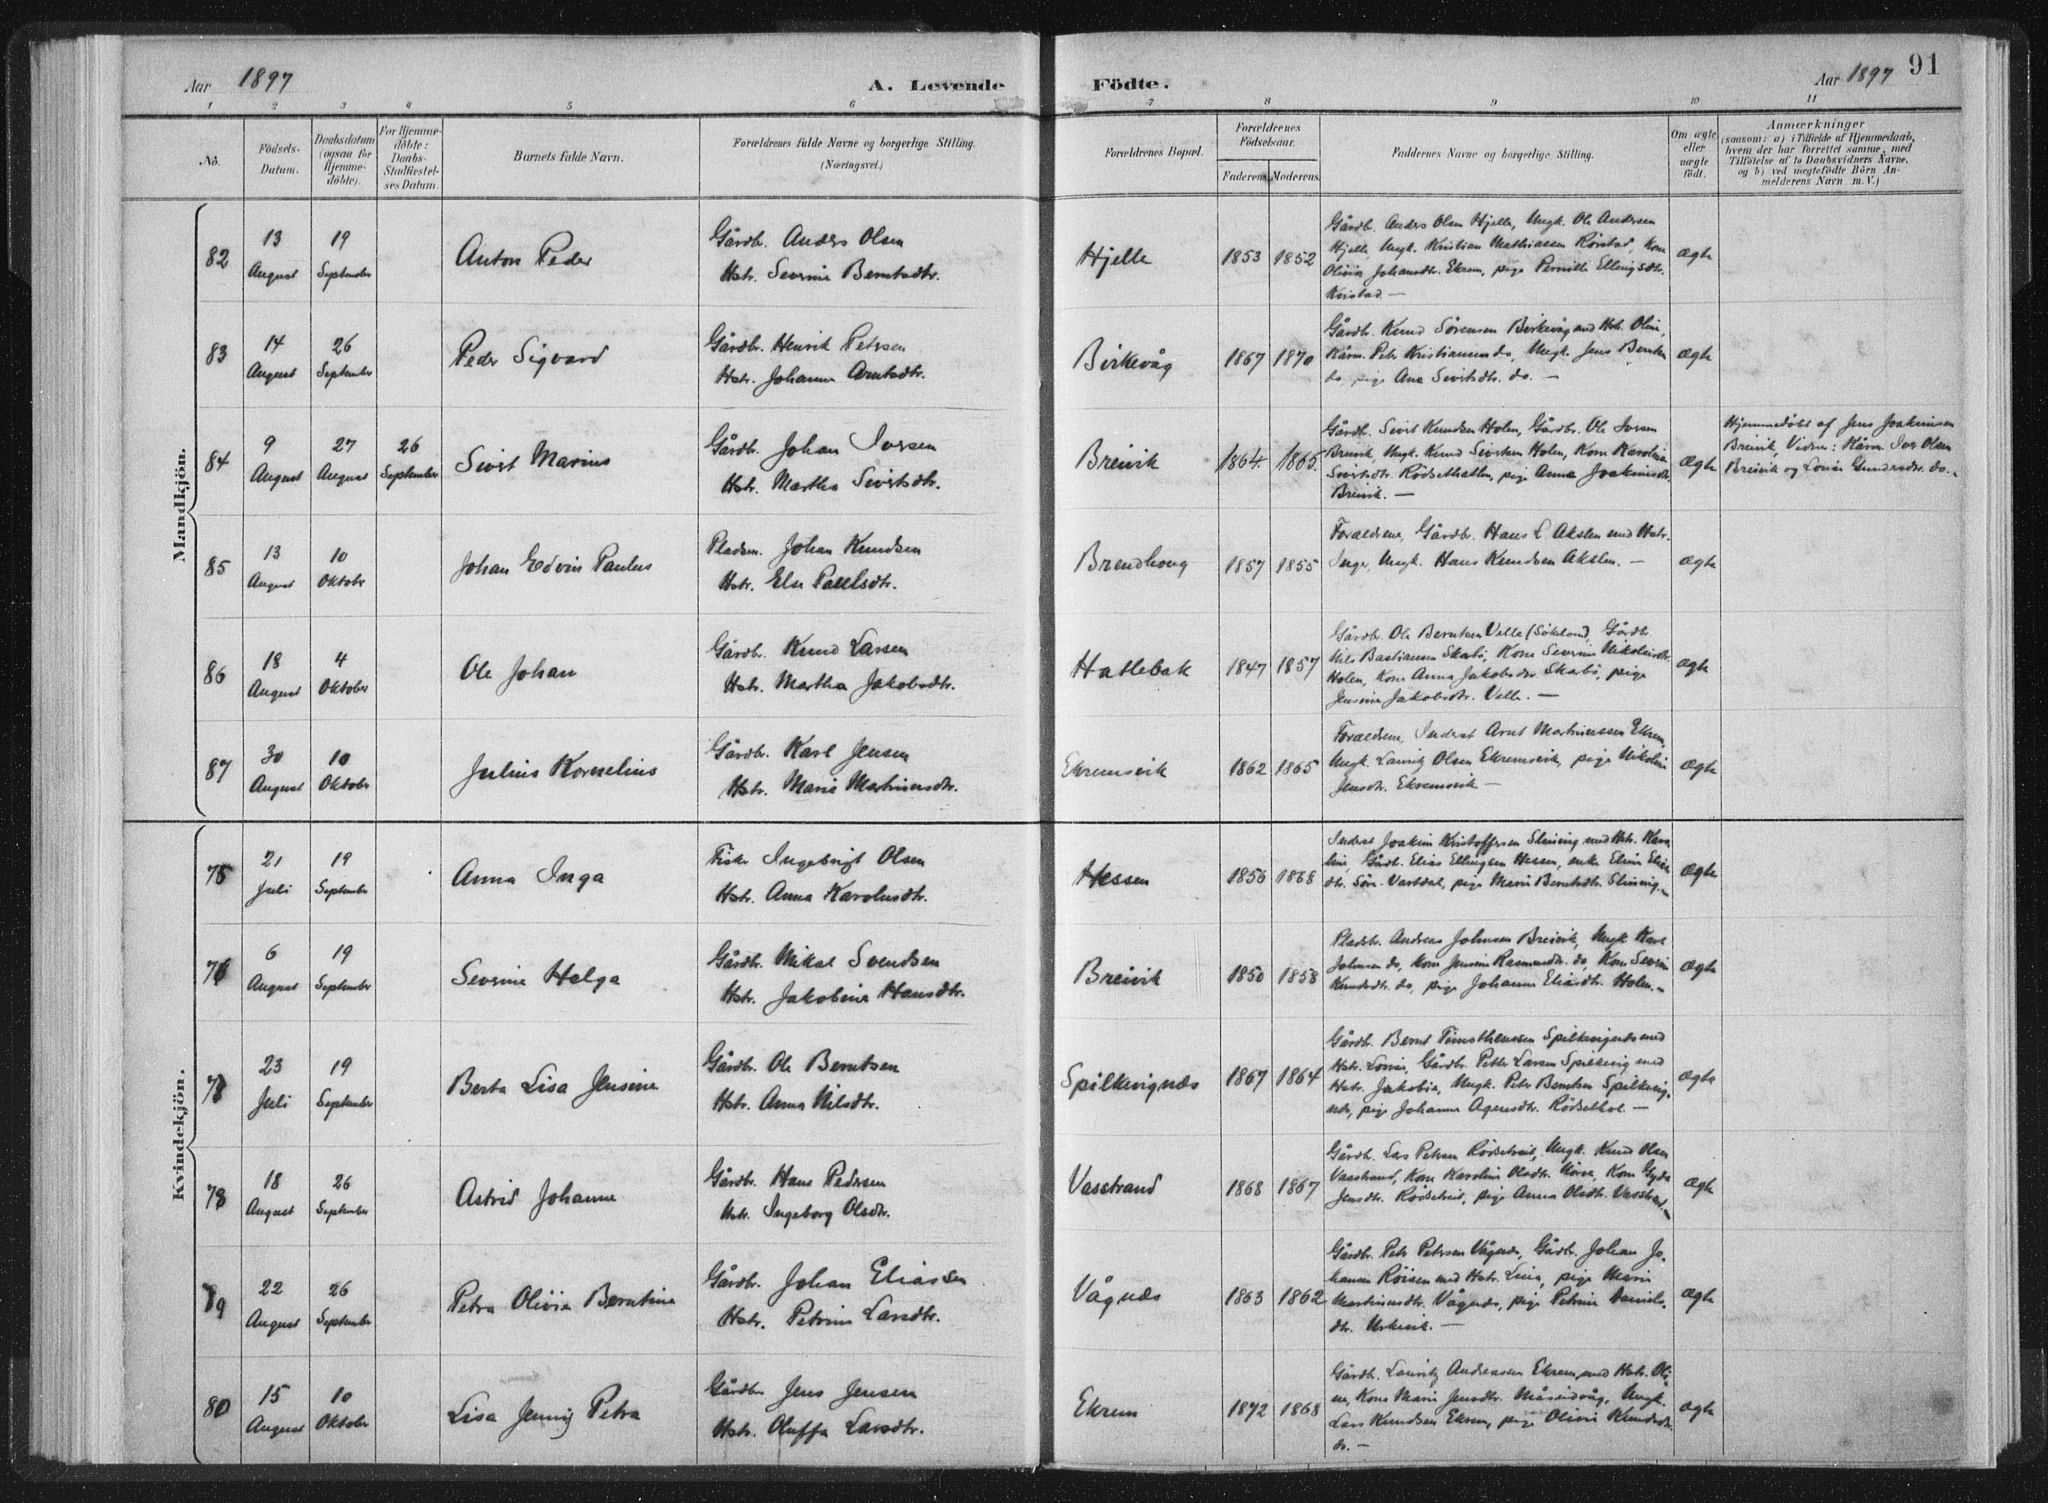 Aar 1897
A. Levende
Födte.
Aar 1897
91
1 2 3 4 5 6 7 8 9 10 11
No.
Födsels-
Datum.
Daabsdatum
(ogsaa for
Hjemme-
döbte).
For Hjemme-
döbte:
Daabs-
Stadfæstel-
ses Datum.
Barnets fulde Navn.
Forældrenes fulde Navne og borgerlige Stilling.
(Næringsvei.)
Forældrenes Bopæl.
Forældrenes
Födselsaar.
Faderens. Moderens.
Faddernes Navne og borgerlige Stilling.
Om ægte
eller
uægte
födt.
Anmærkninger
(saasom: a) i Tilfælde af Hjemmedaab,
hvem der har forrettet samme, med
Tilföielse af to Daabsvidners Navne.
og b) ved uægtefödte Börn An-
melderens Navn m. V.)
Mandkjön.
82
13 August
19 September
Anton Peder
Gårdbr. Anders Olsen
Hstr. Severine Berntsdtr.
Hjelle
1853 1852
Gårdbr. Anders Olsen Hjelle, Ungk. Ole Andersen
Hjelle, Ungk. Kristian Mathiassen Rörstad, Kone
Olivia Johansdtr. Ekrem, pige Pernille Ellingsdtr.
Kvistad. —
Ægte
83
14 August
26 September
Peder Sigvard
Gårdbr. Henrik Petersen
Hstr. Johanne Arntsdtr.
Birkevåg
1867 1870
Gårdbr. Knud Sørensen Birkevåg med Hstr. Oline,
Kårm. Petr Kristiansen do, Ungk. Jens Berntsen
do, pige Ane Sivertsdtr. do. —
Ægte
84
9 August
27 August
26 September
Sivert Marius
Gårdbr. Johan Iversen
Hstr. Martha Sivertsdtr.
Breivik
1864. 1865.
Gårdbr. Sivert Knudsen Holen, Gårdbr. Ole Iversen
Breivik, Ungk. Knud Sivertsen Holen, Kone Karoline
Sivertsdtr. Rödsethatlen, pige Anna Joakimsdtr.
Breivik. —
Ægte
Hjemmedöbt af Jens Joakimsen
Breivik, Vidner: Kårm. Iver Olsen
Breivik og Lovise Gundersdtr. do. —
85
13 August
10 Oktober
Johan Edvin Paulus
Pladsm. Johan Knudsen
Hstr. Else Paulsdtr.
Brendhoug
1857 1855
Forældrene, Gårdbr. Hans L. Akslen med Hstr.
Inge, Ungk. Hans Knudsen Akslen. —
Ægte
86
18 August
4 Oktober
Ole Johan
Gårdbr. Knud Larsen
Hstr. Martha Jakobsdtr.
Hatlebak
1847 1857
Gårdbr. Ole Berntsen Velle (Sökelven), Gårdbr.
Nils Bastiansen Skarbö, Kone Severine Nikolaisdtr.
Holen, Kone Anna Jakobsdtr. Skarbö, pige
Jensine Jakobsdtr. Velle. —
Ægte
87
30 August
10 Oktober
Julius Kornelius
Gårdbr. Karl Jensen
Hstr. Marie Martinusdtr.
Ekremsvik
1862 1865
Forældrene, Inderst Arnt Martinussen Ekrem,
Ungk. Lauritz Olsen Ekremsvik, pige Nikoline
Jensdtr. Ekremsvik —
Ægte
Kvindekjön.
75
21 Juli
19 September
Anna Inga
Fisker Ingebrigt Olsen
Hstr. Anna Karolusdtr.
Hessen
1856 1868
Inderst Joakim Kristoffersen Slinning med Hstr. Karo-
line, Gårdbr. Elias Ellingsen Hessen, enke Eline Elias-
dtr. Söre-Vartdal, pige Marie Berntsdtr. Slinning. —
Ægte
76
6 August
19 September
Severine Helga
Gårdbr. Mikal Svendsen
Hstr. Jakobine Hansdtr.
Breivik
1850 1858
Pladsbr. Andreas Johnsen Breivik, Ungk Karl
Johnsen do, Kone Jensine Rasmusdtr. do, Kone Severine
Knudsdtr. do, pige Johanne Eliasdtr. Holen. —
Ægte
77
23 Juli
19 September
Berta Lisa Jensine
Gårdbr. Ole Berntsen
Hstr. Anna Nilsdtr.
Spilkevignæs
1867 1864
Gårdbr. Bernt Timotheussen Spilkevignæs med
Hstr. Lovise, Gårdbr. Petter Larsen Spilkevig med
Hstr. Jakobia, Ungk. Petr Berntsen Spilkevig-
næs, pige Johanne Agensdtr. Rödsethol. —
Ægte
78
18 August
26 September
Astrid Johanne
Gårdbr. Hans Pedersen
Hstr. Ingeborg Olsdtr.
Vasstrand
1868 1867
Gårdbr. Lars Petersen Rödsetreit, Ungk. Knud Olsen
Vasstrand, Kone Karoline Olsdtr. Nörve, Kone Gyda
Jensdtr. Rödsetreit, pige Anna Olsdtr. Vasstrand —
Ægte
79
22 August
26 September
Petra Olivia Berntine
Gårdbr. Johan Eliassen
Hstr. Petrine Larsdtr.
Vågnæs
1863 1862
Gårdbr. Petr Petersen Vågnæs, Gårdbr. Johan Jo-
hansen Röisen med Hstr. Lina, pige Marie
Martinusdtr. Vågnæs, pige Petrine Daniels-
dtr. Urkevik. —
Ægte
80
15 August
10 Oktober
Lisa Jenny Petra
Gårdbr. Jens Jensen
Hstr. Oluffa Larsdtr.
Ekrem
1872 1868
Gårdbr. Lauritz Andreassen Ekrem med Hstr. Oli-
ne, Kone Marie Jensdtr. Måseidvåg, Ungk.
Lars Knudsen Ekrem, pige Olivie Knudsdtr.
do. —
Ægte